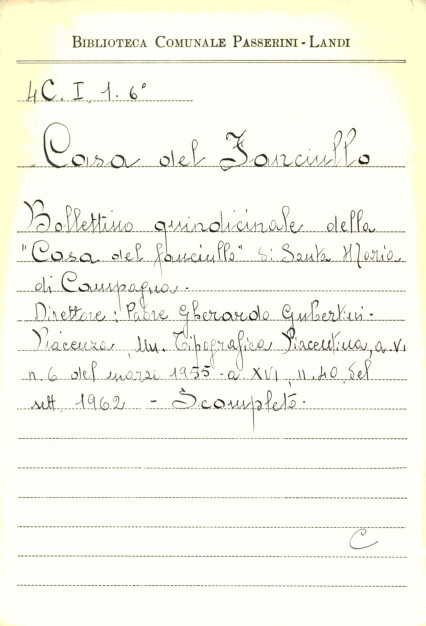 BIBLIOTECA COMUNALE PASSERINI - LANDI
4C. I. 1. 6°
Casa del Fanciullo
Bollettino quindicinale della
"Casa del fanciullo" di Santa Maria
di Campagna.
Direttore: Padre Gherardo Gubertini.
Piacenza, Un. Tipografica Piacentina, a. VI
n. 6 del marzo 1955 - a XVI, n. 40, del
sett. 1962 - Incompleto.
C